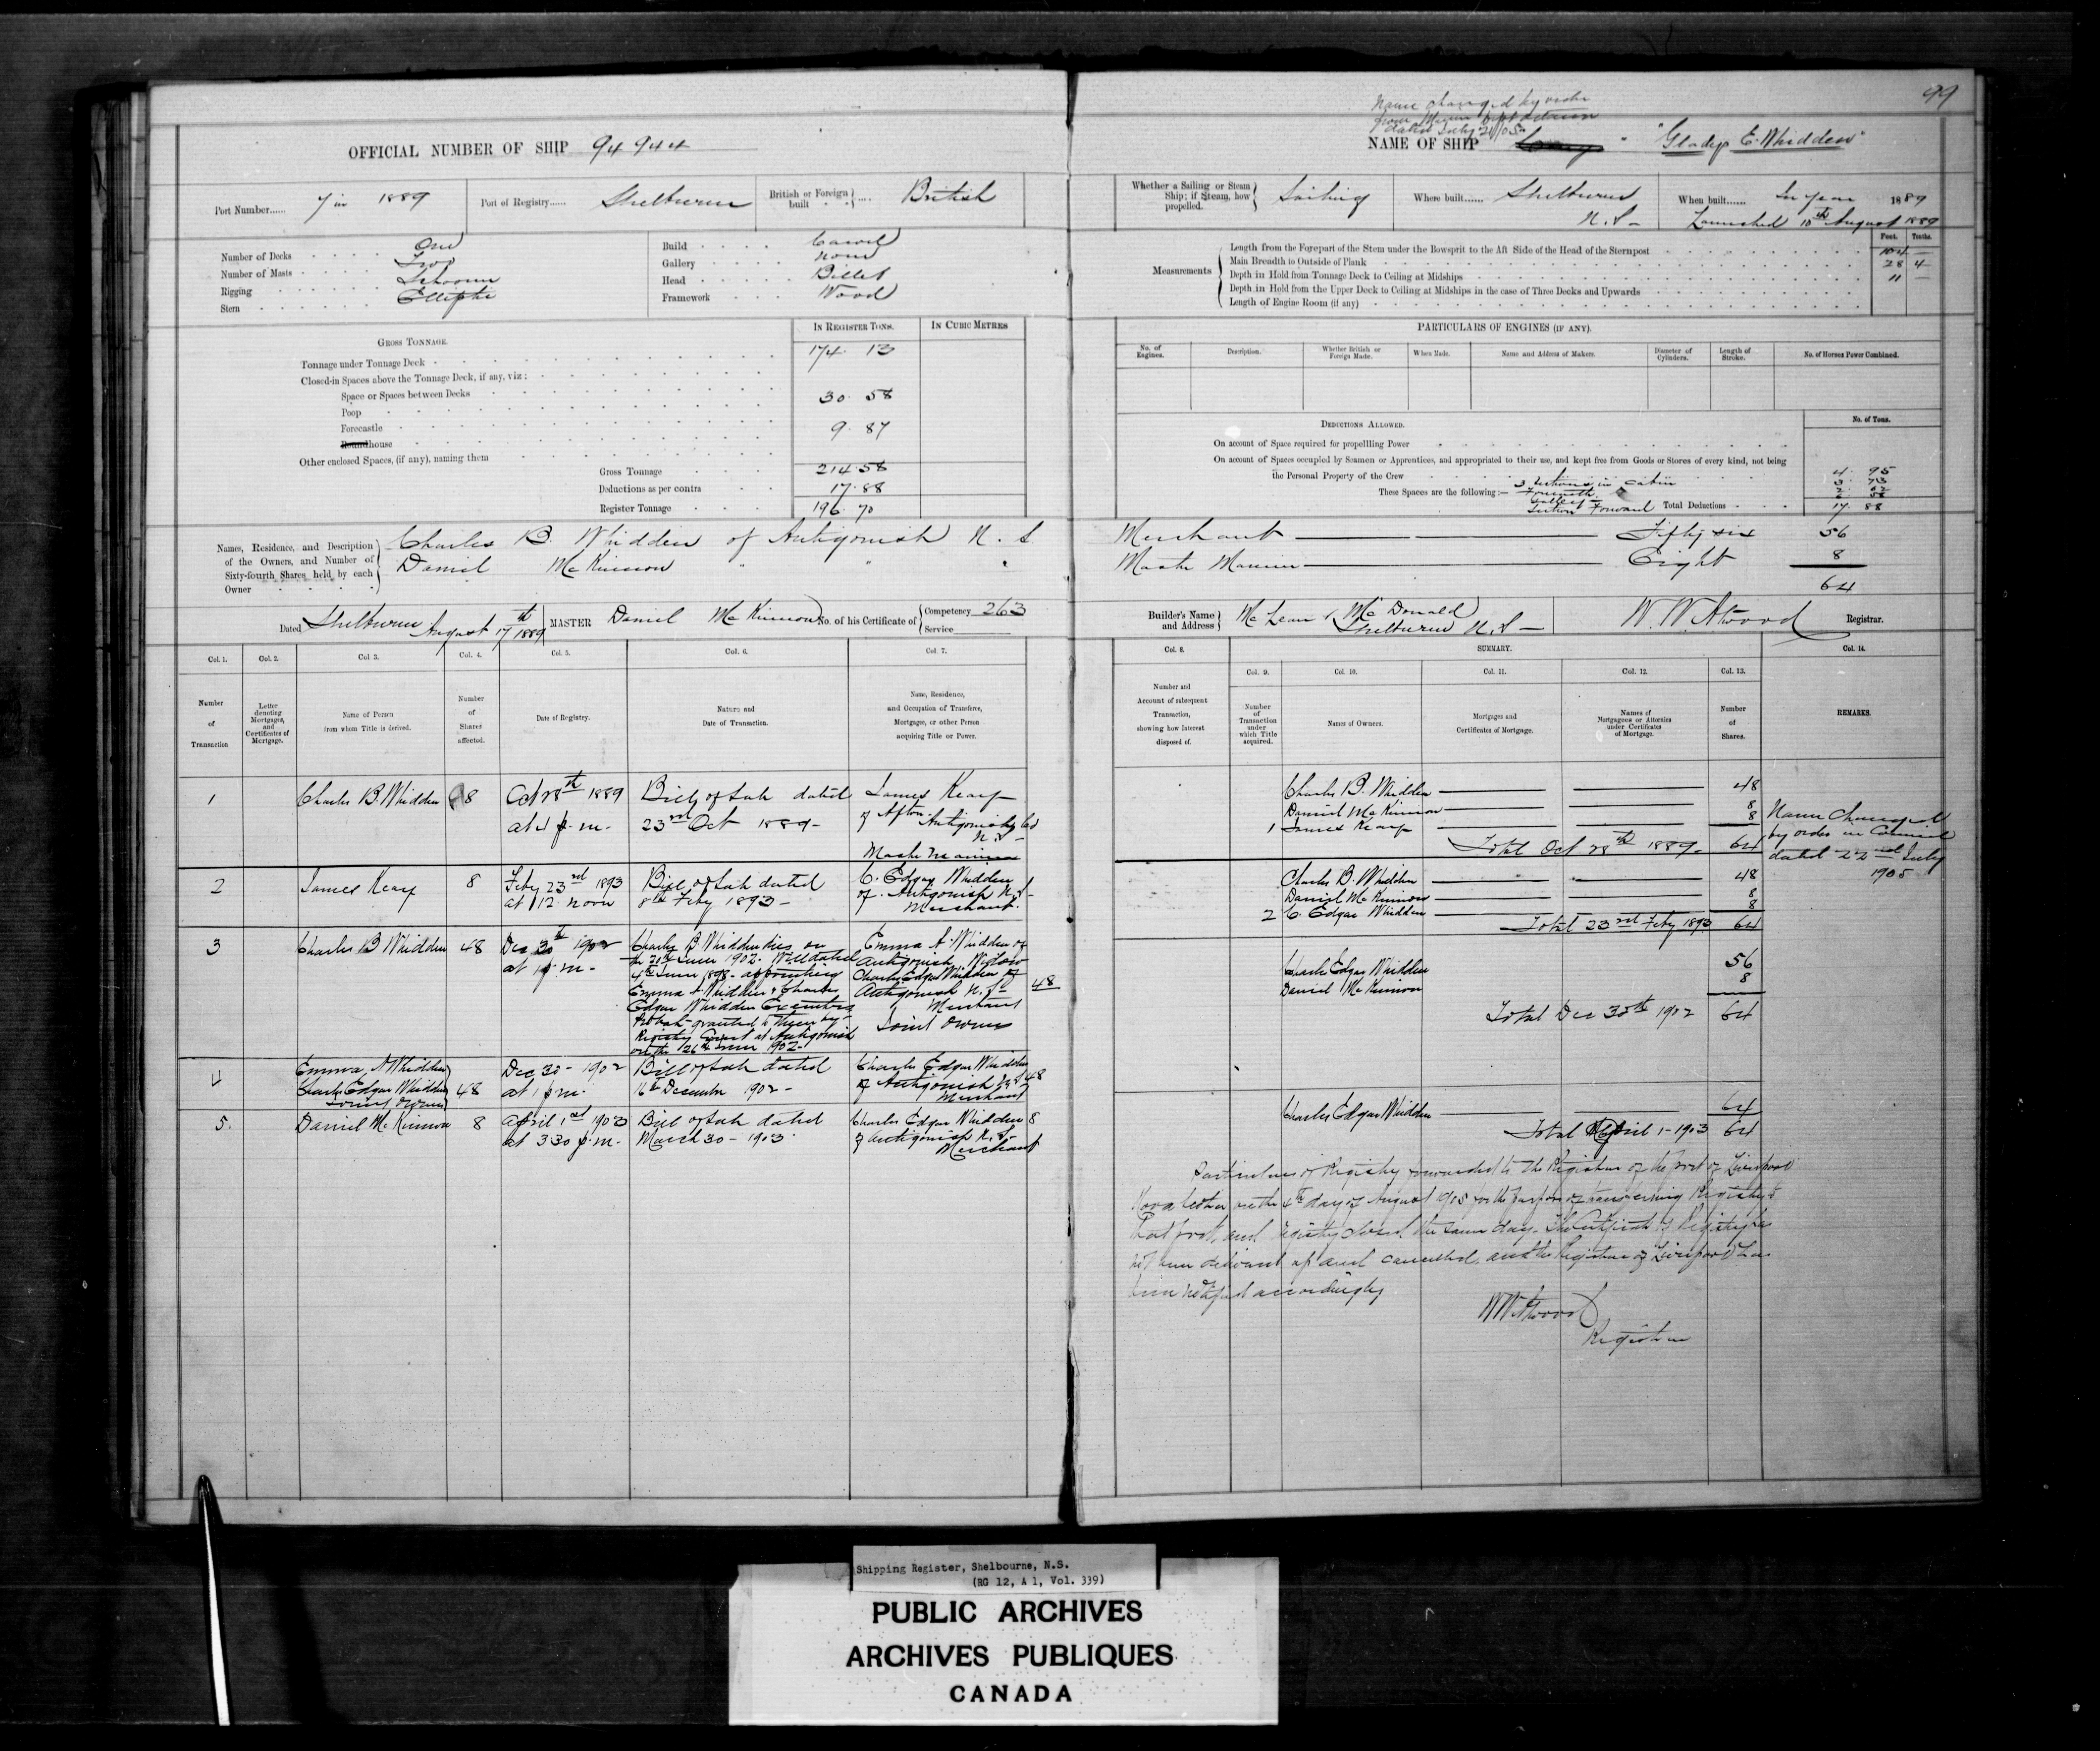 99
OFFICIAL NUMBER OF SHIP 94944
Name changed by order
from Marine Dept Ottawa
dated July 21/05
NAME OF SHIP " "Gladys E. Whidden"
Port Number...... 7 in 1889
Port of Registry...... Shelburne
British or Foreign built .... British
Whether a Sailing or Steam Ship; if Steam, how propelled. Sailing
Where built...... Shelburne N.S.
When built...... In year 1889
Launched 10th August 1889
Number of Decks One
Number of Masts Two
Rigging Schooner
Stern Elliptic
Build Carvel
Gallery None
Head Billet
Framework Wood
Measurements
Feet. Tenths.
Length from the Forepart of the Stem under the Bowsprit to the Aft Side of the Head of the Sternpost 104 —
Main Breadth to Outside of Plank 28 4
Depth in Hold from Tonnage Deck to Ceiling at Midships 11 —
Depth in Hold from the Upper Deck to Ceiling at Midships in the case of Three Decks and Upwards
Length of Engine Room (if any)
GROSS TONNAGE.
IN REGISTER TONS. IN CUBIC METRES
Tonnage under Tonnage Deck 174. 13
Closed-in Spaces above the Tonnage Deck, if any, viz:
Space or Spaces between Decks
Poop 30. 58
Forecastle
Roundhouse 9. 87
Other enclosed Spaces, (if any), naming them
Gross Tonnage 214.58
Deductions as per contra 17.88
Register Tonnage 196. 70
PARTICULARS OF ENGINES (IF ANY).
No. of Engines.
Description.
Whether British or Foreign Made.
When Made.
Name and Address of Makers.
Diameter of Cylinders.
Length of Stroke.
No. of Horses Power Combined.
DEDUCTIONS ALLOWED.
No. of Tons.
On account of Space required for propelling Power
On account of Spaces occupied by Seamen or Apprentices, and appropriated to their use, and kept free from Goods or Stores of every kind, not being
the Personal Property of the Crew 4. 95
These Spaces are the following:— 3 Sections in cabin
Section Forward
Total Deductions 17. 88
Names, Residence, and Description of the Owners, and Number of Sixty-fourth Shares held by each Owner
Charles B. Whidden of Antigonish N.S. Merchant — Fifty six 56
Daniel McKinnon " " " Master Mariner — Eight 8
64
Dated Shelburne August 17th 1889
MASTER Daniel McKinnon
No. of his Certificate of Competency 263
Service
Builder's Name and Address McLean & McDonald Shelburne N.S.
W. W. Atwood Registrar.
Col. 1. Col. 2. Col. 3. Col. 4. Col. 5. Col. 6. Col. 7.
Number of Transaction
Letter denoting Mortgages, and Certificates of Mortgage.
Name of Person from whom Title is derived.
Number of Shares affected.
Date of Registry.
Nature and Date of Transaction.
Name, Residence, and Occupation of Transferee, Mortgagee, or other Person acquiring Title or Power.
Col. 8. SUMMARY. Col. 14.
Col. 9. Col. 10. Col. 11. Col. 12. Col. 13.
Number and Account of subsequent Transaction, showing how Interest disposed of.
Number of Transaction under which Title acquired.
Names of Owners.
Mortgages and Certificates of Mortgage.
Names of Mortgagees or Attornies under Certificates of Mortgage.
Number of Shares.
REMARKS.
1 Charles B. Whidden 8 Oct 28th 1889 at 4 p.m.
Bill of Sale dated 23rd Oct 1889-
James Keay of Afton Antigonish Co N.S. Master Mariner
Charles B. Whidden 48
Daniel McKinnon 8
1 James Keay 8
Total Oct 28th 1889. 64
Name Changed
by order in Council
dated 22nd July
1905
2 James Keay 8 Feby 23rd 1893 at 12 noon
Bill of Sale dated 8th Feby 1893-
C. Edgar Whidden of Antigonish N.S. Merchant.
Charles B. Whidden 48
Daniel McKinnon 8
2 C. Edgar Whidden 8
Total 23rd Feby 1893 64
3 Charles B Whidden 48 Dec 30th 1902 at 1 p.m.
Charles B Whidden dies on
the 21st June 1902. Will dated
4th June 1898 - appointing
Emma A. Whidden & Charles
Edgar Whidden Executors
Probate granted to them by
Registry Court at Antigonish
on the 26th June 1902-
Emma A. Whidden of
Antigonish Widow
Charles Edgar Whidden of
Antigonish N.S. 48
Merchant
Joint Owners
Charles Edgar Whidden 56
Daniel McKinnon 8
Total Dec 30th 1902 64
4 Emma A Whidden
Charles Edgar Whidden 48
Joint Owners
Dec 30 - 1902 at 1 p.m.
Bill of Sale dated 16th December 1902-
Charles Edgar Whidden of Antigonish N.S. 48 Merchant
5. Daniel McKinnon 8 April 1st 1903 at 3 30 p.m.
Bill of Sale dated March 30 - 1903
Charles Edgar Whidden 8
of Antigonish N.S. Merchant
Charles Edgar Whidden 64
Total April 1-1903 64
Particulars of Registry forwarded to the Registrar of the port of Liverpool
Nova Scotia on the 4th day of August 1905 for the purpose of transferring Registry to
that port, and Registry closed the same day. The Certificate of Registry has
not been delivered up and cancelled, and the Registrar of Liverpool has
been notified accordingly
W W Atwood
Registrar
Shipping Register, Shelbourne, N.S.
(RG 12, A 1, Vol. 339)
PUBLIC ARCHIVES
ARCHIVES PUBLIQUES
CANADA